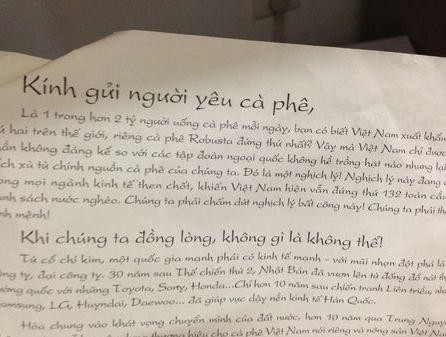 Kính gửi người yêu cà phê,
Là 1 trong hơn 2 tỷ người uống cà phê mỗi ngày, bạn có biết Việt Nam xuất khẩu
hai trên thế giới, riêng cà phê Robusta đứng thứ nhất? Vậy mà Việt Nam chỉ được
không đáng kể so với các tập đoàn ngoại quốc không hề trồng hạt nào nhưng lại
ích xù từ chính nguồn cà phê của chúng ta. Đó là một nghịch lý! Nghịch lý này đang
ong mọi ngành kinh tế then chốt, khiến Việt Nam hiện vẫn đứng thứ 132 toàn cầu
anh sách nước nghèo. Chúng ta phải chấm dứt nghịch lý bất công này! Chúng ta phải th
nh mệnh!
Khi chúng ta đồng lòng, không gì là không thể!
Từ cổ chí kim, một quốc gia mạnh phải có kinh tế mạnh - với mũi nhọn đột phá là
ông ty, đại công ty. 30 năm sau Thế chiến thứ 2, Nhật Bản đã vươn lên từ đống đổ nát th
ường quốc với những Toyota, Sony, Honda...Chỉ hơn 10 năm sau chiến tranh Liên triều, nh
amsung, LG, Huyndai, Daewoo... đã giúp vực dậy nền kinh tế Hàn Quốc.
Hòa chung vào khát vọng chuyển mình của đất nước, hơn 10 năm qua Trung Nguy
thương hiệu cho cà phê Việt Nam nói riêng và nông sản Việt Nam